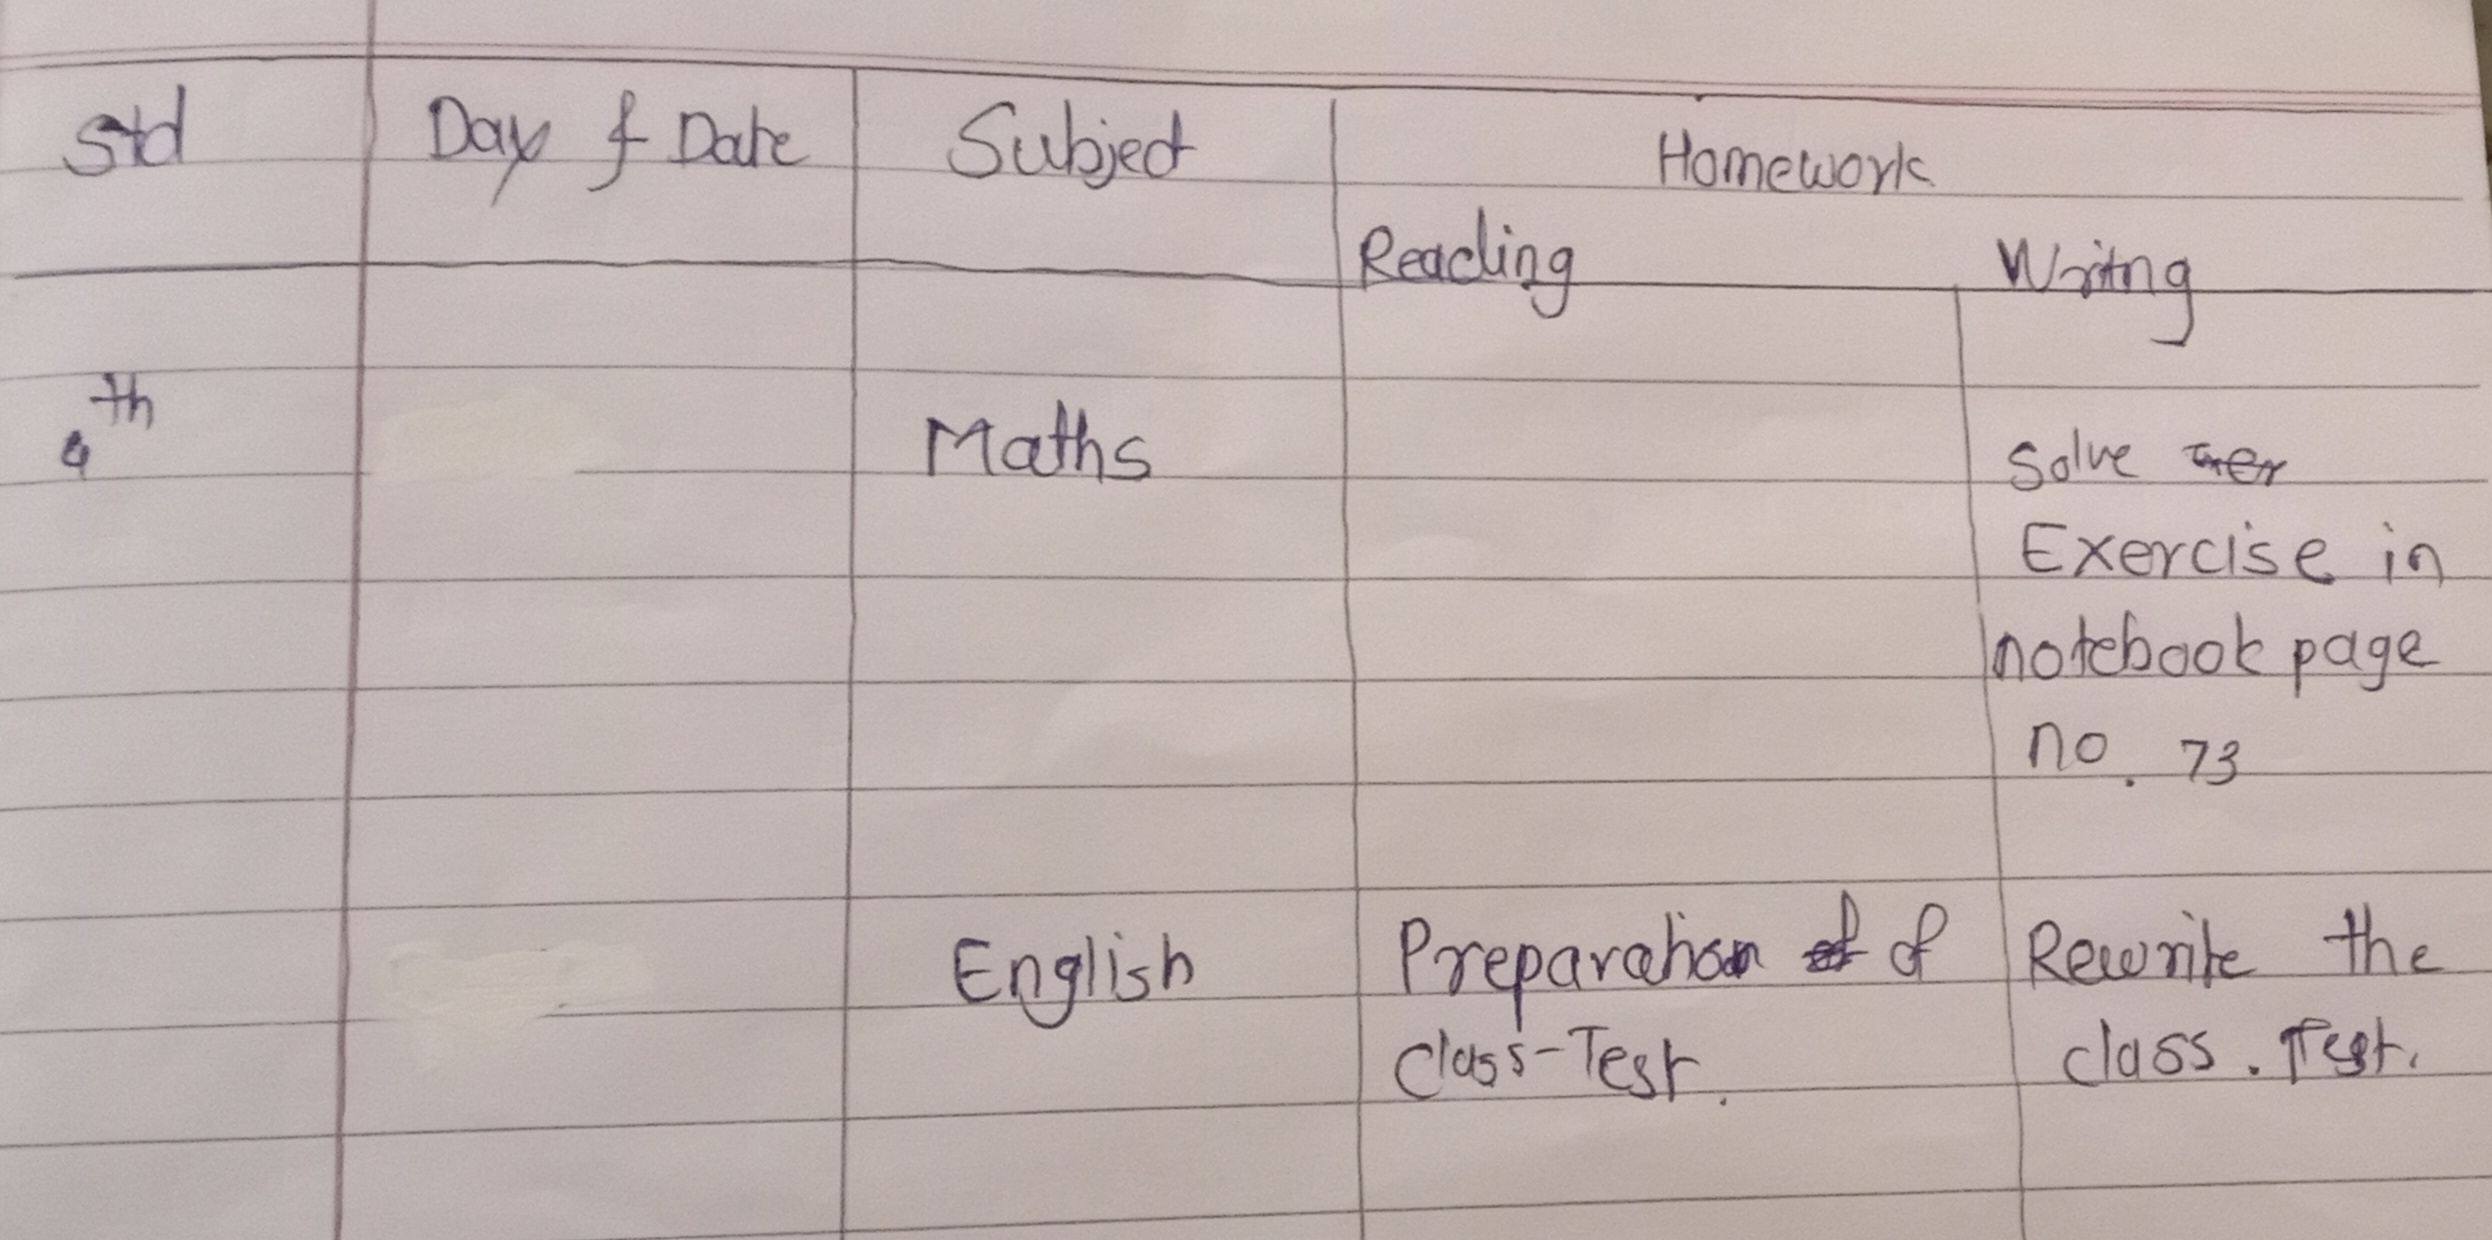 Std Day & Date Subject Homework
Reading Writng
4th Maths Solve
Exercise in
notebook page
no. 73
English Preparation of Rewrite the
Class-Test. class. Test.